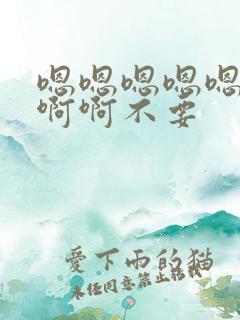 嗯嗯嗯嗯嗯
啊啊不要
愛下雨的猫
未经同意禁止转载